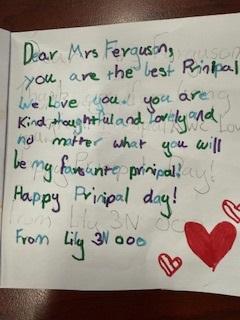 Dear Mrs Ferguson,
you are the best Prinipal
We Love you. you are
Kind, thoughtful and Lovely and
no matter what you will
be my favourite prinipal!
Happy Prinipal day!
From Lily 3N ooo